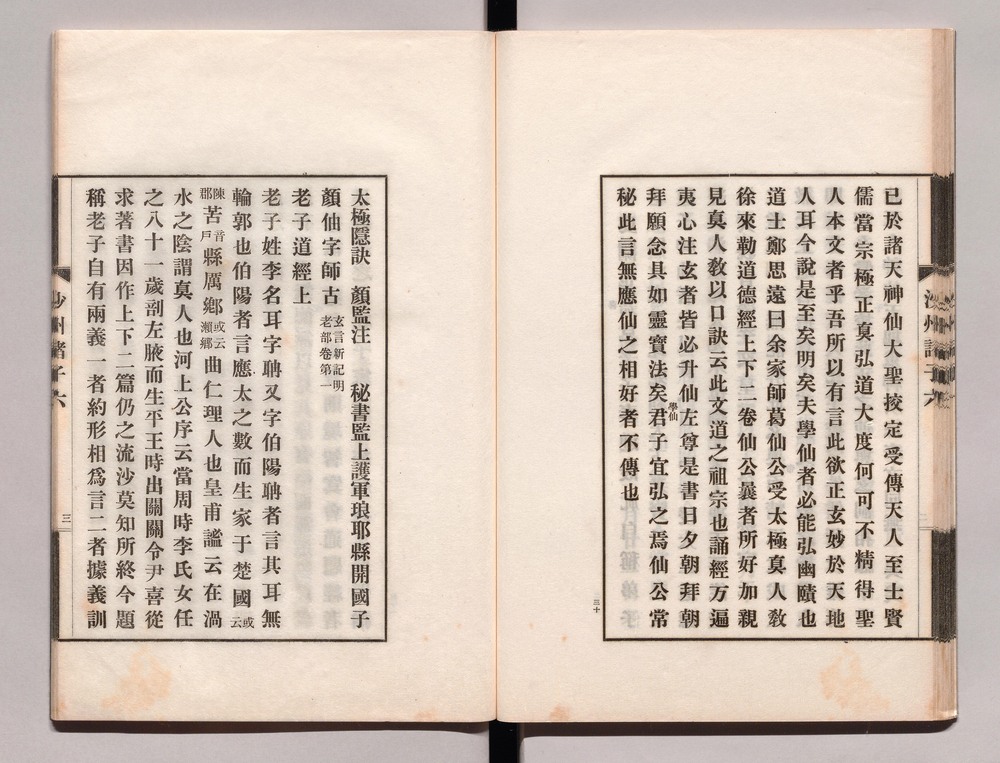 已於諸天神仙大聖挍定受傳天人至士賢
儒當宗極正真弘道大度何可不精得聖
人本文者乎吾所以有言此欲正玄妙於天地
人耳今說是至矣明矣夫學仙者必能弘幽賾也
道士鄭思遠曰余家師葛仙公受太極真人敎
徐來勒道德經上下二卷仙公曩者所好加親
見真人敎以口訣云此文道之祖宗也誦經万遍
夷心注玄者皆必升仙左尊是書日夕朝拜朝
拜願念具如靈寶法矣學仙君子宜弘之焉仙公常
秘此言無應仙之相好者不傳也
三十
太極隱訣　顏監注　秘書監上護軍琅耶縣開國子
顏仙字師古玄言新記明老部卷第一
老子道經上
老子姓李名耳字聃又字伯陽聃者言其耳無
輪郭也伯陽者言應太之數而生家于楚國或云
陳郡苦音戶縣厲鄕或云瀨鄕曲仁理人也皇甫謐云在渦
水之陰謂真人也河上公序云當周時李氏女任
之八十一歲剖左腋而生平王時出關關令尹喜從
求著書因作上下二篇仍之流沙莫知所終今題
稱老子自有兩義一者約形相爲言二者據義訓
沙州諸子六
三